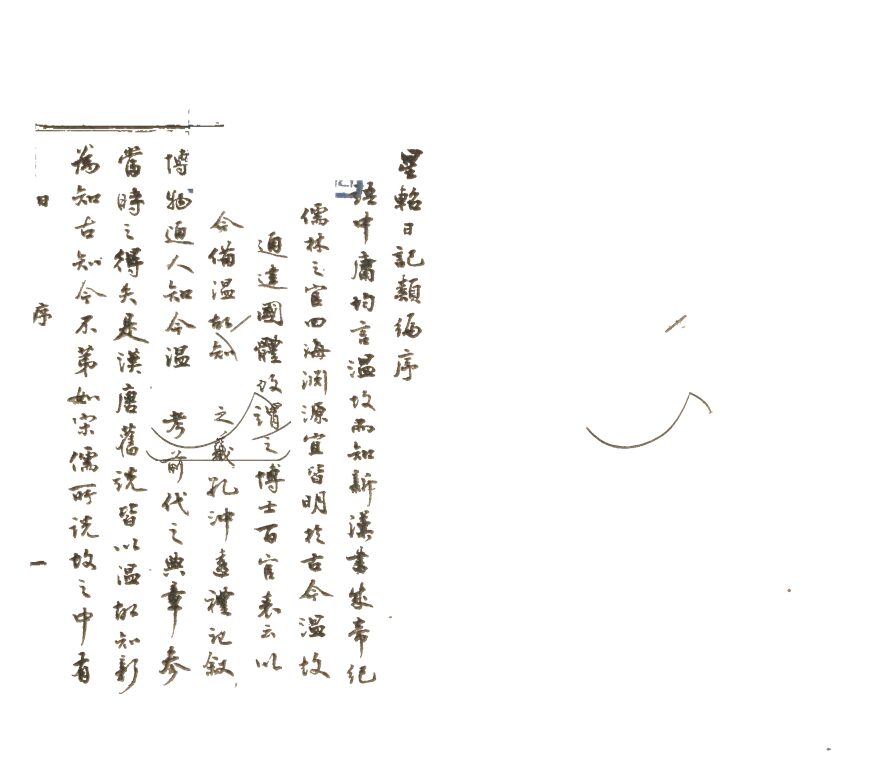 星軺日記類編序
語中庸均言温故而知新漢書成帝紀
儒林之官四海渊源宜皆明於古今温故
通達國體故謂之博士百官表云以
今備温故知 之義孔沖遠禮記叙
博物通人知今温 考前代之典章参
當時之得失是漢唐舊説皆以温故知新
為知古知今不第如宋儒所説故之中有
日 序 一